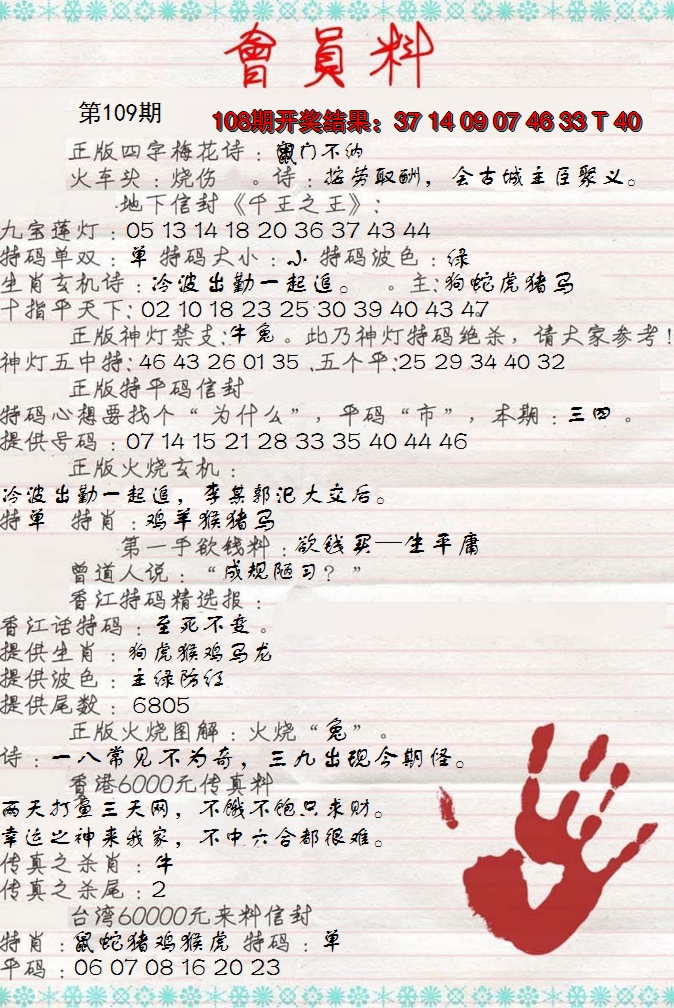 會員料
第109期
108期开奖结果：37 14 09 07 46 33 T 40
正版四字梅花诗：鼠门不纳
火车头：烧伤 。诗：按劳取酬，会古城主臣聚义。
地下信封《千王之王》：
九宝莲灯：05 13 14 18 20 36 37 43 44
特码单双：单 特码大小：小 特码波色：绿
生肖玄机诗：冷波出勤一起追。 。主：狗蛇虎猪马
十指平天下：02 10 18 23 25 30 39 40 43 47
正版神灯禁支：牛兔。此乃神灯特码绝杀，请大家参考！
神灯五中特：46 43 26 01 35 .五个平：25 29 34 40 32
正版特平码信封
特码心想要找个“为什么”，平码“市”，本期：三四。
提供号码：07 14 15 21 28 33 35 40 44 46
正版火烧玄机：
冷波出勤一起追，李某郭汜大交后。
特单 特肖：鸡羊猴猪马
第一手欲钱料：欲钱买一生平庸
曾道人说：“成规陋习？”
香江特码精选报：
香江话特码：至死不变。
提供生肖：狗虎猴鸡马龙
提供波色：主绿防红
提供尾数：6805
正版火烧图解：火烧“兔”。
诗：一八常见不为奇，三九出现今期怪。
香港6000元传真料
两天打鱼三天网，不饿不饱只求财。
幸运之神来我家，不中六合都很难。
传真之杀肖：牛
传真之杀尾：2
台湾60000元来料信封
特肖：鼠蛇猪鸡猴虎 特码：单
平码：06 07 08 16 20 23